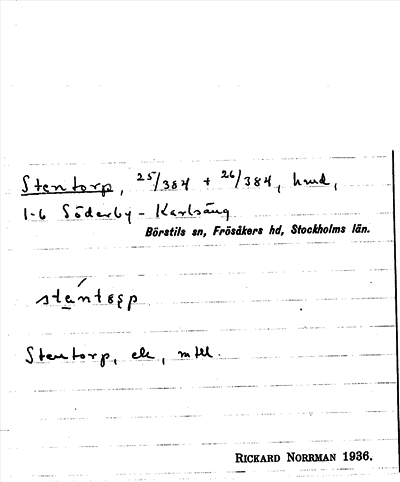 Stentorp, 25/384 + 26/384, hmd,
1-6 Söderby - Karlsäng
Börstils sn, Frösåkers hd, Stockholms län.
Stentorp, ek, mtl.
RICKARD NORRMAN 1936.